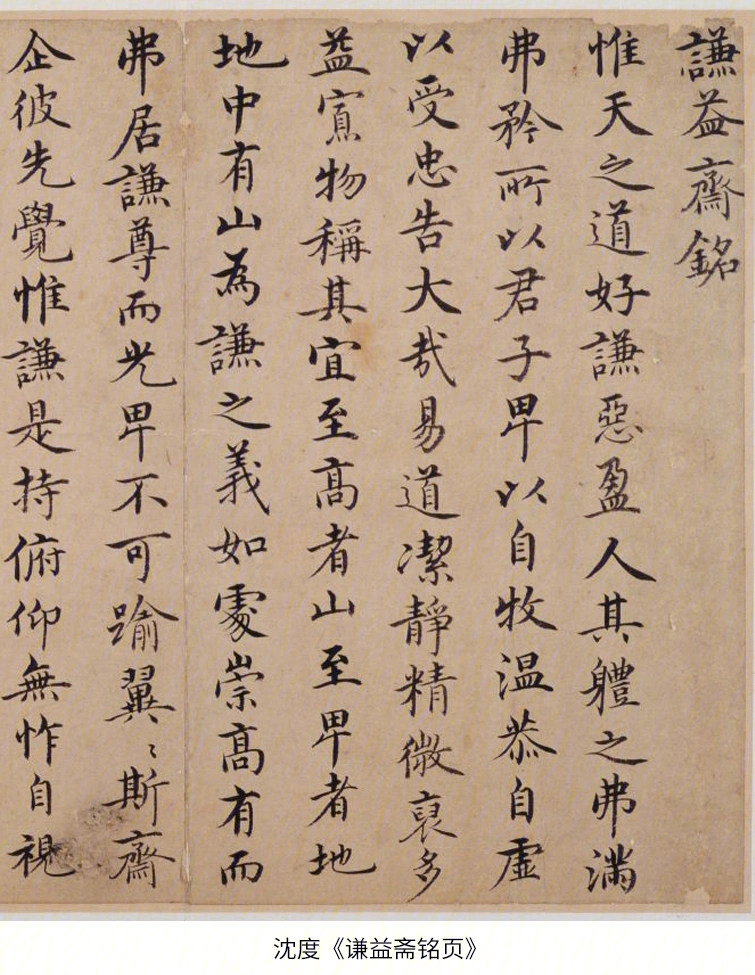 謙益齋銘
惟天之道好謙惡盈人其軆之弗滿
弗矜所以君子卑以自牧温恭自虛
以受忠告大哉易道潔靜精微裒多
益寡物稱其宜至高者山至卑者地
地中有山為謙之義如處崇高有而
弗居謙尊而光卑不可踰翼〻斯齋
企彼先覺惟謙是持俯仰無怍自視
沈度《谦益斋铭页》